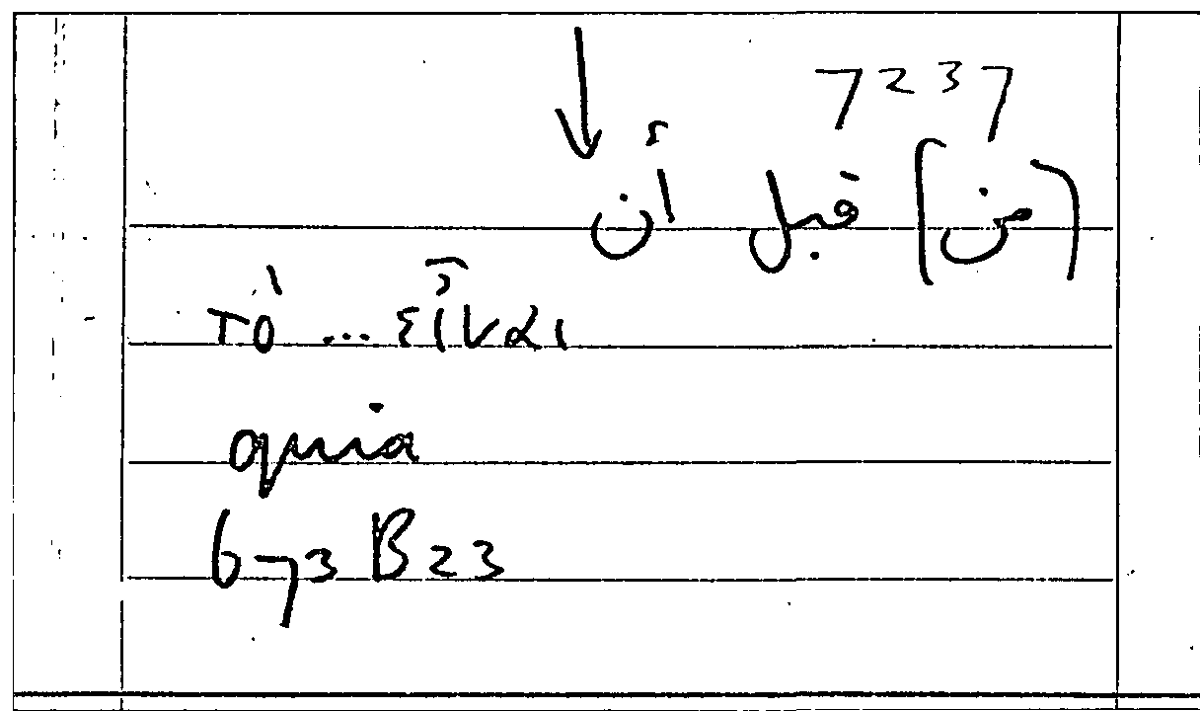 7237
↓
(من) قبل أن
τὸ ... εἶναι
quia
673 B 23